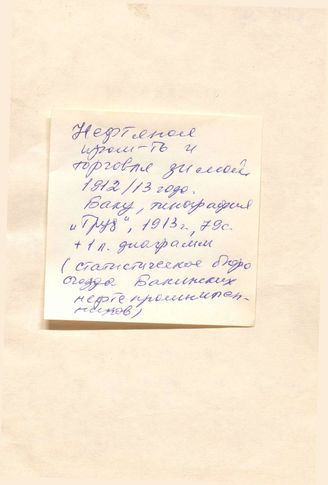 Нефтяная
пром-ть и
торговля зимой
1912/13 года.
Баку, типография
„Труд", 1913г., 79с.
+ 1 л. диаграмм
(статистическое бюро
съезда Бакинских
нефтепромышлен-
ников)